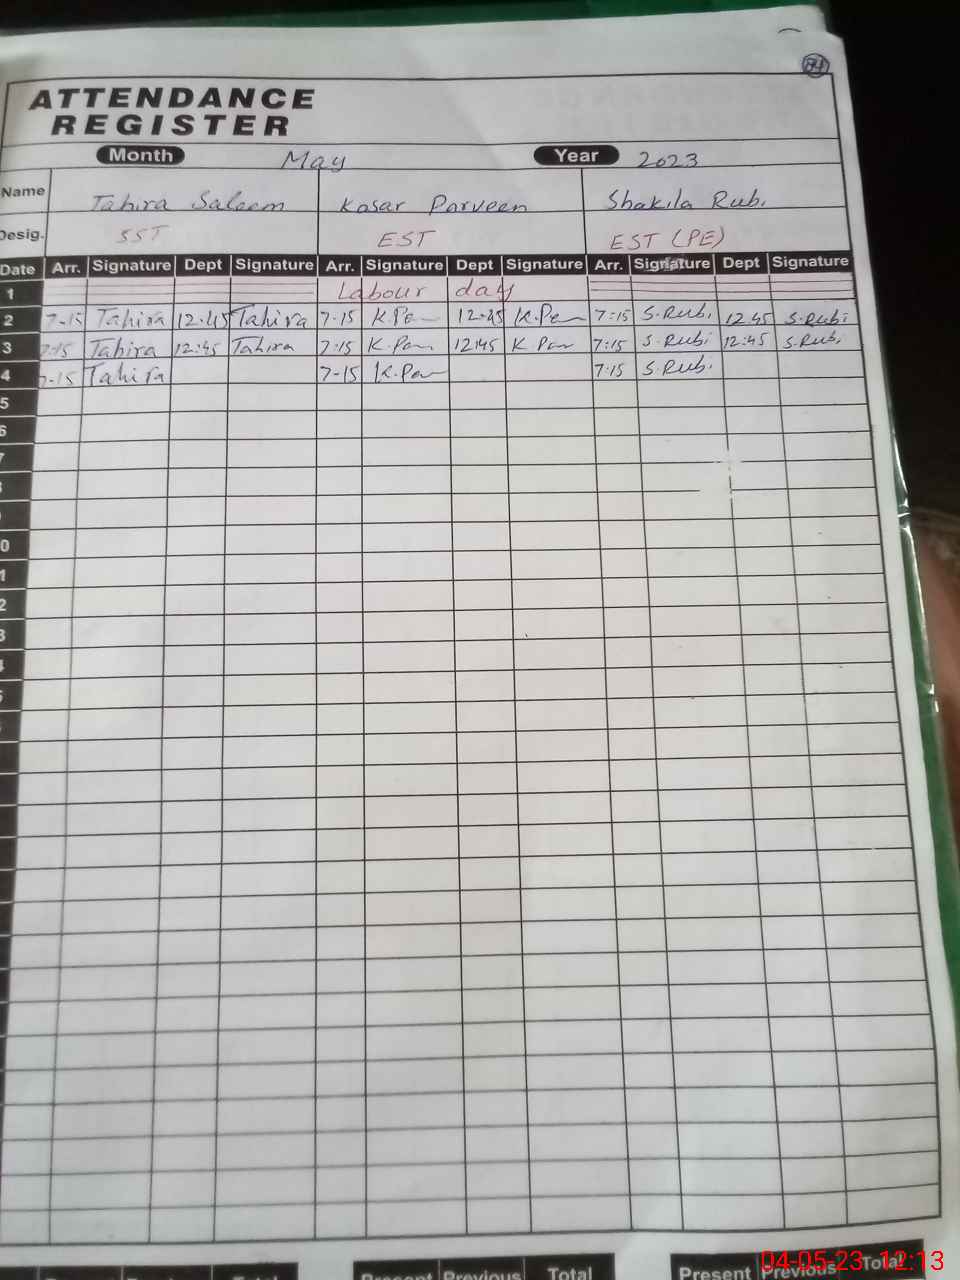 ATTENDANCE
REGISTER
Month May Year 2023
Name Tahira Saleem Kosar Parveen Shakila Rubi
Desig. SST EST EST (PE)
Date Arr. Signature Dept Signature Arr. Signature Dept Signature Arr. Signature Dept Signature
1 Labour day
2 7-15 Tahira 12:45 Tahira 7-15 K.Par 12:45 K.Par 7:15 S.Rubi 12.45 S.Rubi
3 7:15 Tahira 12:45 Tahira 7:15 K.Par 12:45 K Par 7:15 S.Rubi 12:45 S.Rubi
4 7-15 Tahira 7-15 K.Par 7:15 S.Rubi
5
6
7
0
1
2
3
4
5
Total Present Previous Total Present Previous Total
04-05-23 12:13